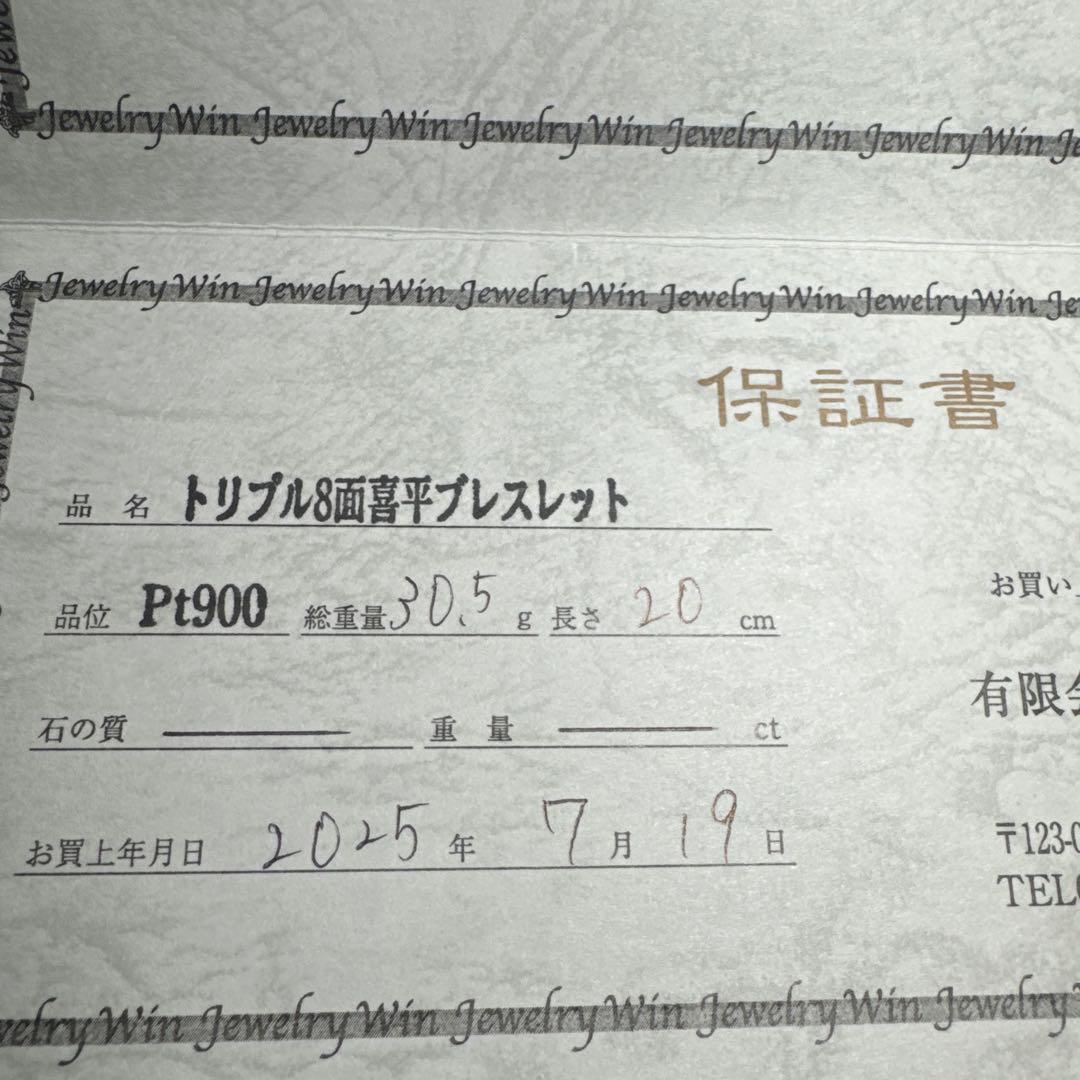 Jewelry Win Jewelry Win Jewelry Win Jewelry Win Jewelry Win Je
Jewelry Win Jewelry Win Jewelry Win Jewelry Win Jewelry Win Je
Jewelry Win
保証書
品名 トリプル8面喜平ブレスレット
品位 Pt900 総重量 30.5 g 長さ 20 cm
お買い上
石の質 ——— 重量 ——— ct
有限会
お買上年月日 2025年 7月 19日
〒123-0
TEL
welry Win Jewelry Win Jewelry Win Jewelry Win Jewelry